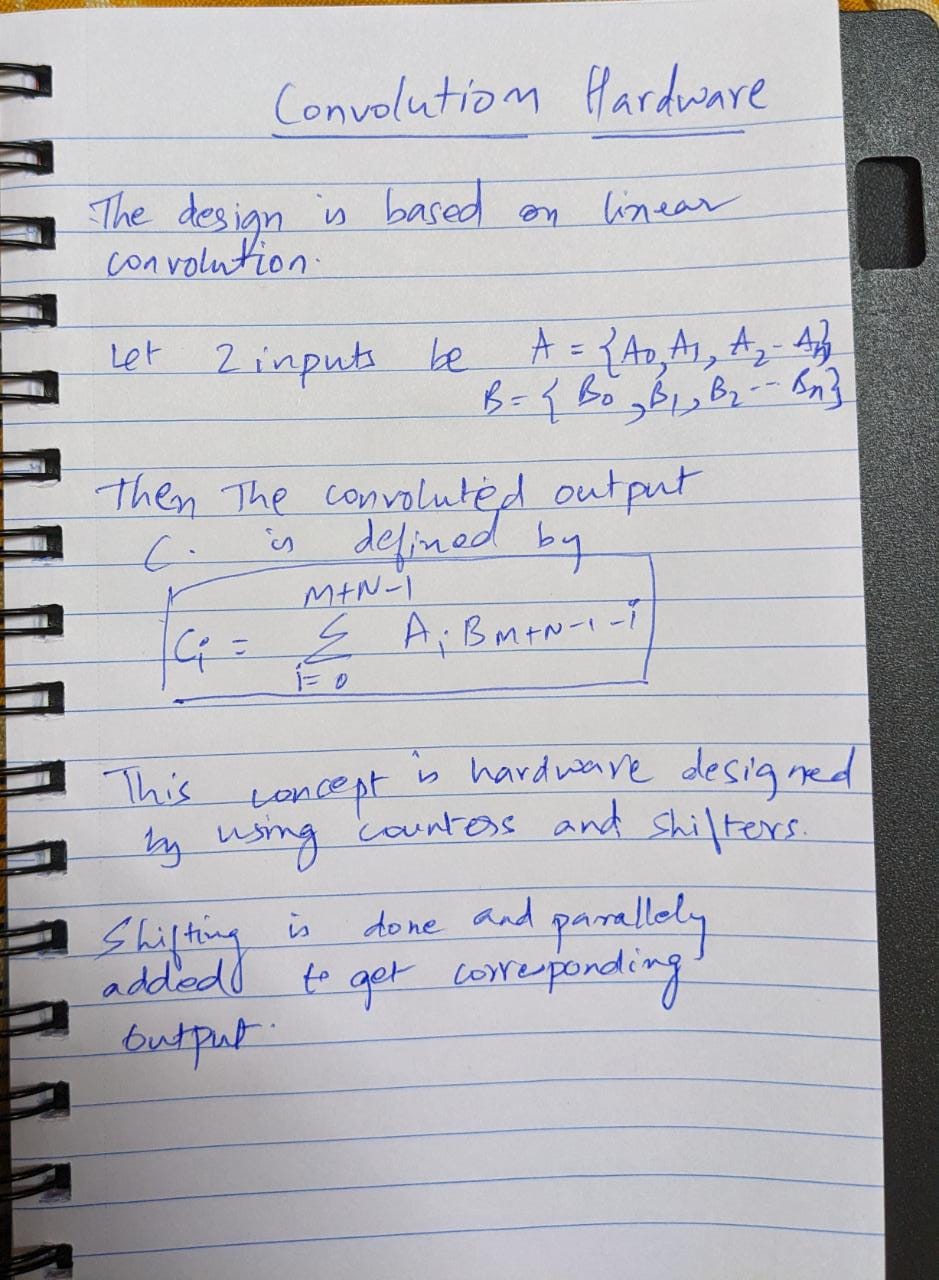 Convolution Hardware
The design is based on linear
convolution.
Let 2 inputs be A = {A0, A1, A2 - An}
B = { B0, B1, B2 -- Bn}
Then The convoluted output
C. is defined by
M+N-1
Ci = Σ Ai BM+N-1-i
i= 0
This concept is hardware designed
by using counters and shifters.
Shifting is done and parallely
added to get corresponding
output.